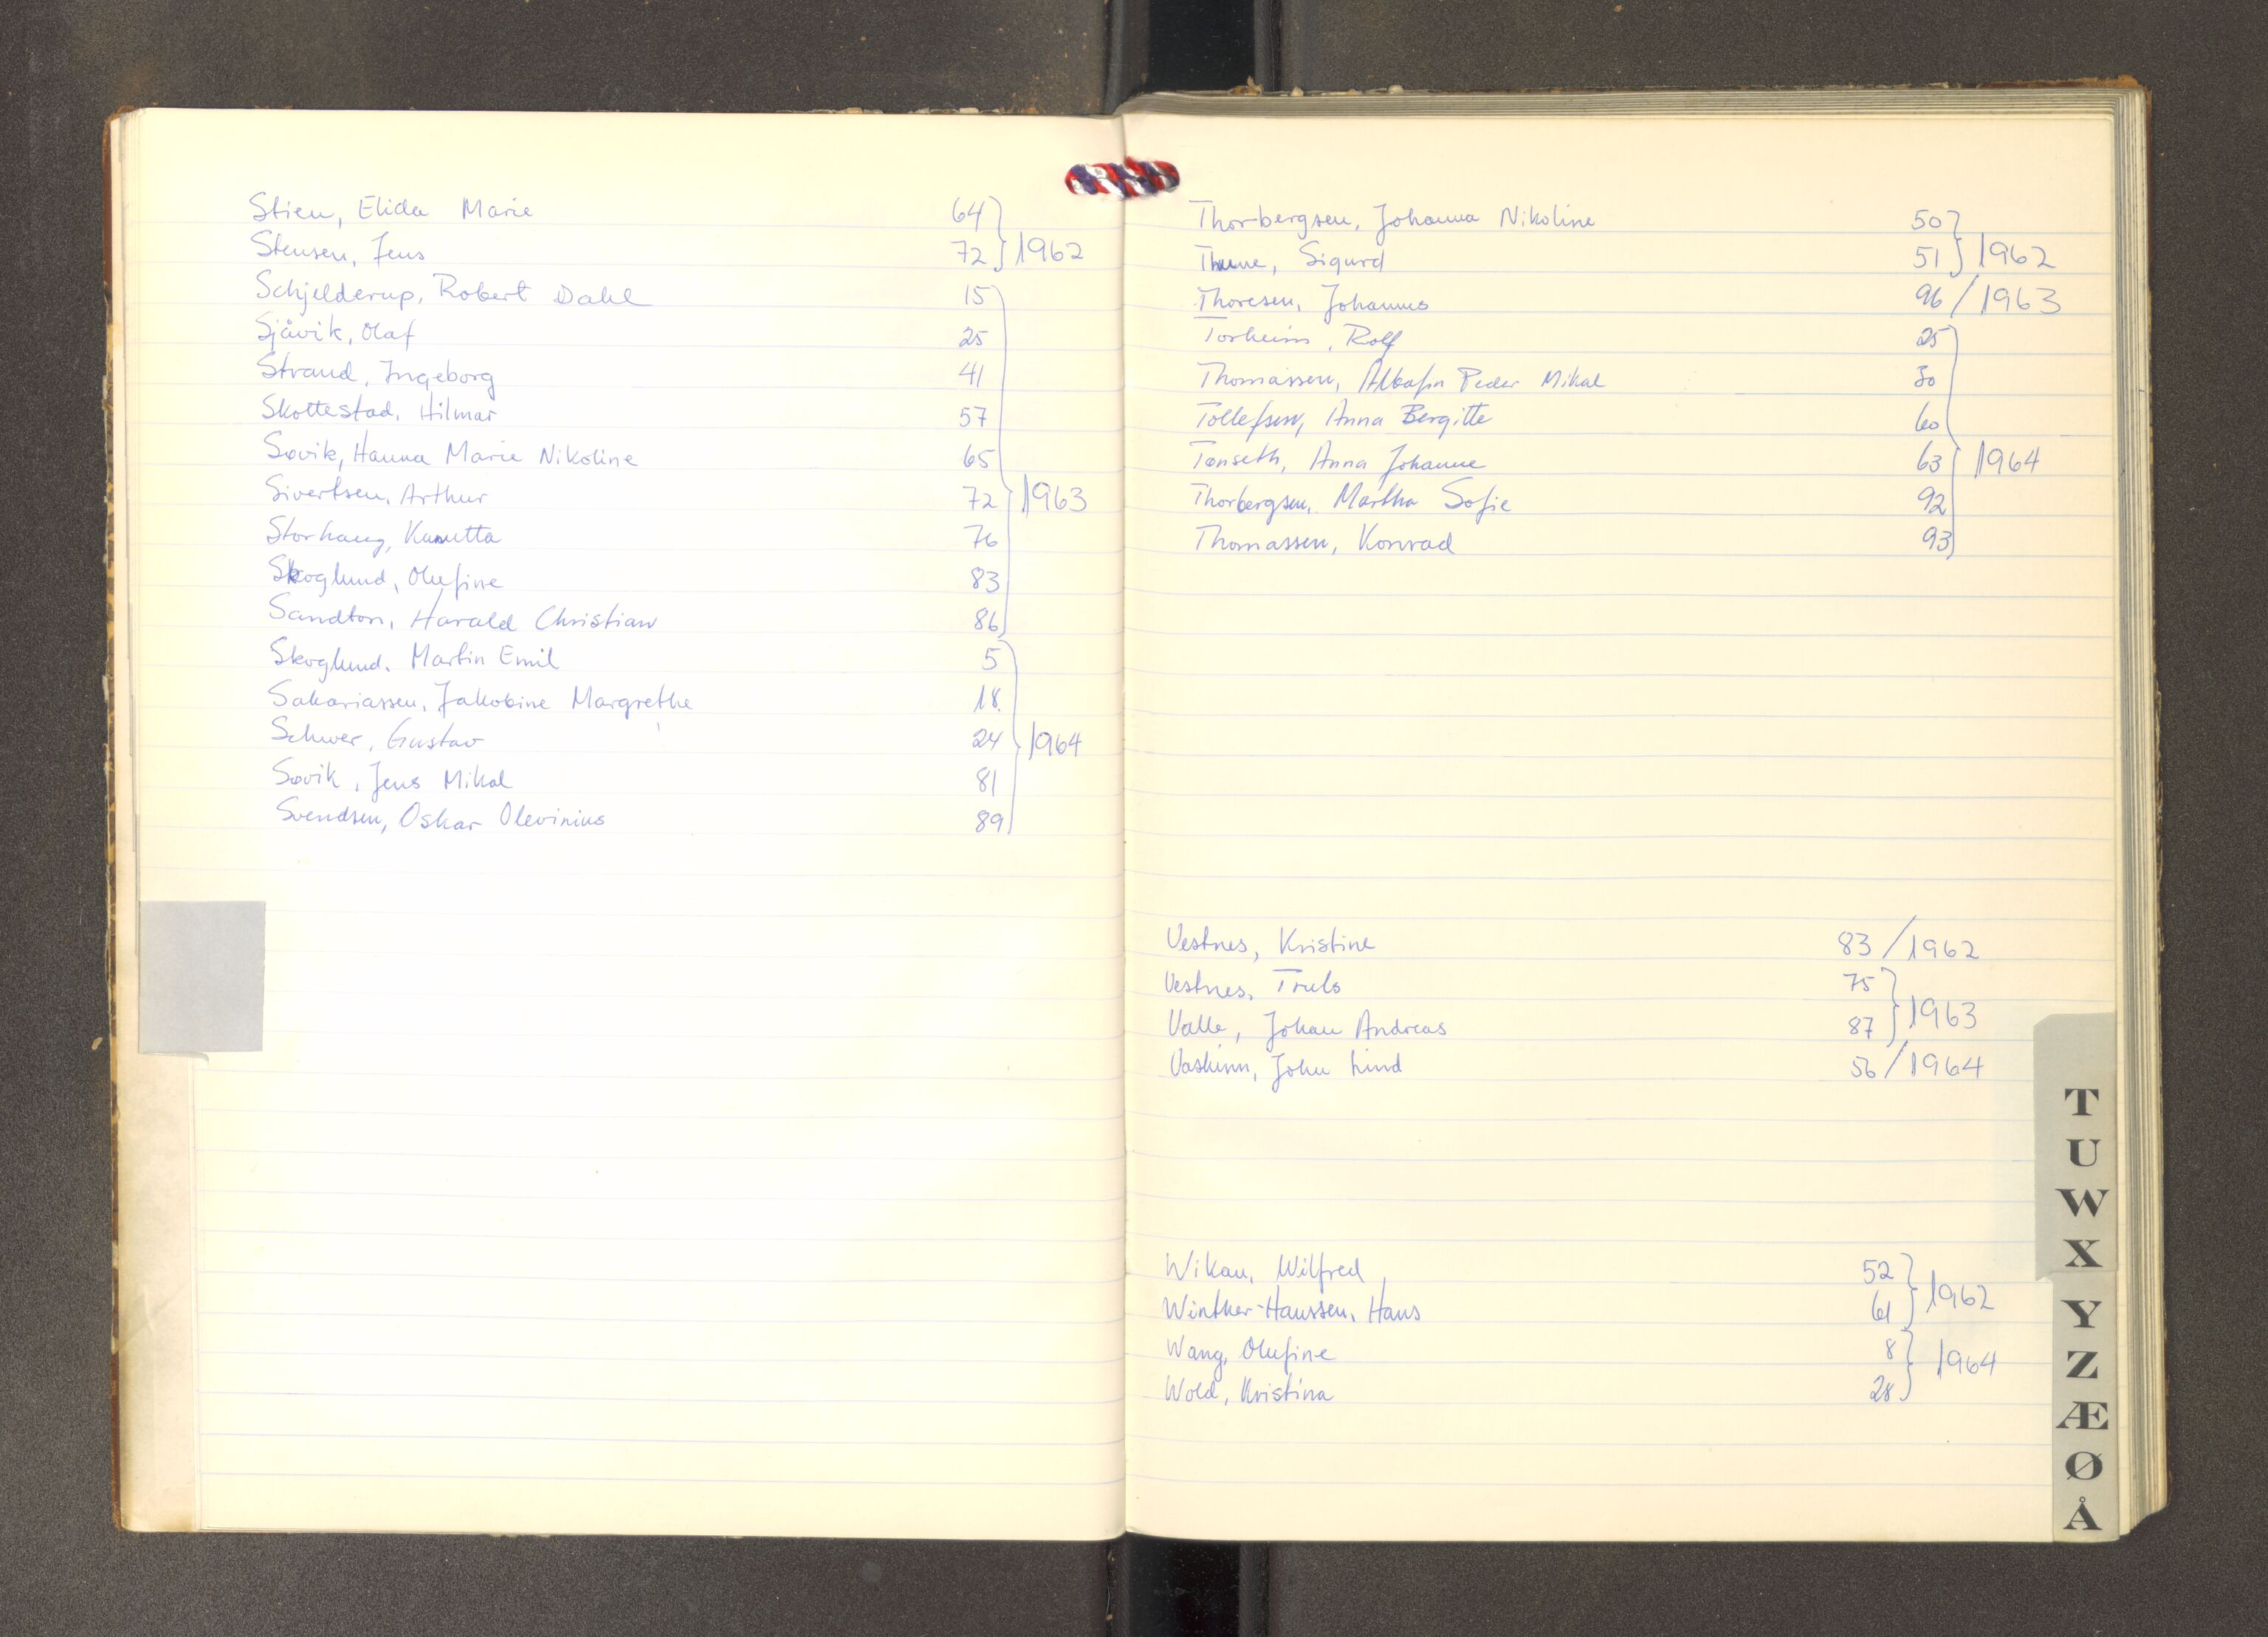 Stien, Elida Marie 64
Stensen, Jens 72 } 1962
Schjelderup, Robert Dahl 15
Sjåvik, Olaf 25
Strand, Ingeborg 41
Skottestad, Hilmar 57
Søvik, Hanna Marie Nikoline 65
Sivertsen, Arthur 72 } 1963
Storhaug, Kanutta 76
Skoglund, Olufine 83
Sandton, Harald Christian 86
Skoglund, Martin Emil 5
Sakariassen, Jakobine Margrethe 18
Schwer, Gustav 24 } 1964
Søvik, Jens Mikal 81
Svendsen, Oskar Olevinius 89
Thorbergsen, Johanna Nikoline 50
Thune, Sigurd 51 } 1962
Thoresen, Johannes 96 / 1963
Torheim, Rolf 25
Thomassen, Peder Mikal 30
Tollefsen, Anna Bergitte 60
Tønseth, Anna Johanne 63 } 1964
Thorbergsen, Martha Sofie 92
Thomassen, Konrad 93
Vestnes, Kristine 83 / 1962
Vestnes, Truls 75
Valle, Johan Andreas 87 } 1963
Vaskinn, John Lind 56 / 1964
Wikan, Wilfred 52
Winther-Hanssen, Hans 61 } 1962
Wang, Olufine 8
Wold, Kristina 28 } 1964
T
U
W
X
Y
Z
Æ
Ø
Å